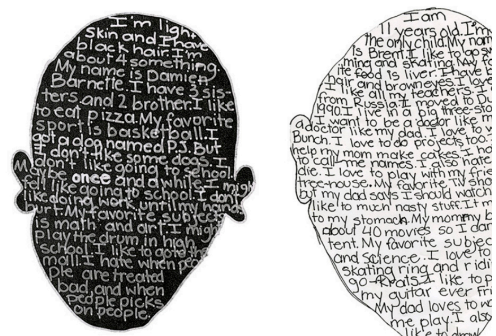 I'm light
skin and I have
black hair. I'm
about 4 something
My name is Damien
Barnette. I have 3 sis-
ters and 2 brother. I like
to eat pizza. My favorite
sport is basketball. I
got a dog named P.J. But
I don't like some dogs. I
don't like going to school.
Maybe once and a while I might
fell like going to school. I don't
like doing work until my hands
hurt. My favorite subject
is math and art. I might
play the drum in high
school. I like to go to the
mall. I hate when peo
ple are treated
bad and when
people picks
on people.
I am
11 years old. I'm
the only child. My nam
is Bren I like to go sw
ming and skating. My fa
ite food is liver. I have b
hair and brown eyes. I
like all my teachers
from Russia. I moved to Du
1990. I live in a big three-stor
I want to be a doctor like m
a doctor like my dad. I love to w
Bunch. I love to do projects too. I
help my mom make cakes. I hate
to call me names. I also hate
die. I love to play with my frie
tree-house. My favorite TV sh
but my dad says I should watch
like to much nasty stuff. It m
to my stomach. My mommy b
about 40 movies so I dar
tent. My favorite subjec
and science. I love to
skating ring and ridi
go-Krats. I like to p
my guitar ever fri
My dad loves to wa
me play. I also
like to draw